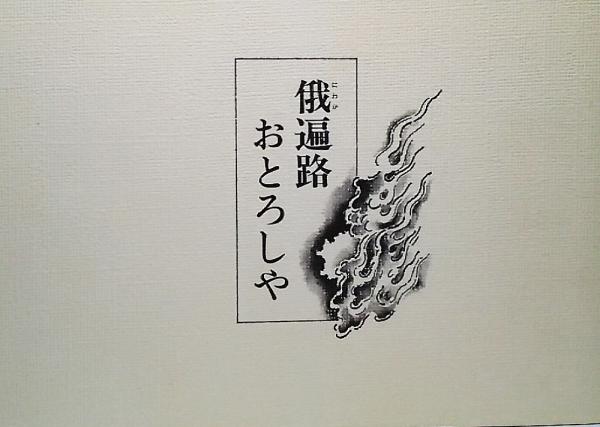 俄遍路
にわか
おとろしや